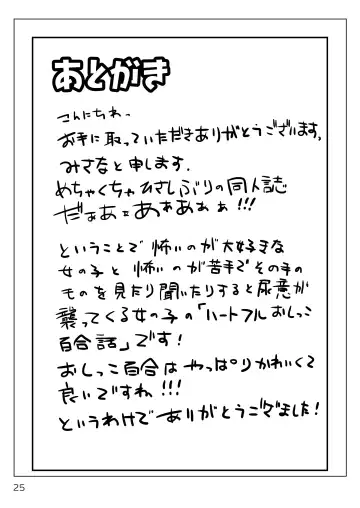 あとがき
こんにちわ。
お手に取っていただきありがとうございます。
みさなと申します。
めちゃくちゃひさしぶりの同人誌
だぁあ=あああぁぁ!!!
ということで怖いのが大好きな
女の子と怖いのが苦手でその手の
ものを見たり聞いたりすると尿意が
襲ってくる女の子の「ハートフルおしっこ
百合話」です!
おしっこ百合はやっぱりかわいくて
良いですね!!!
というわけでありがとうございました!
25